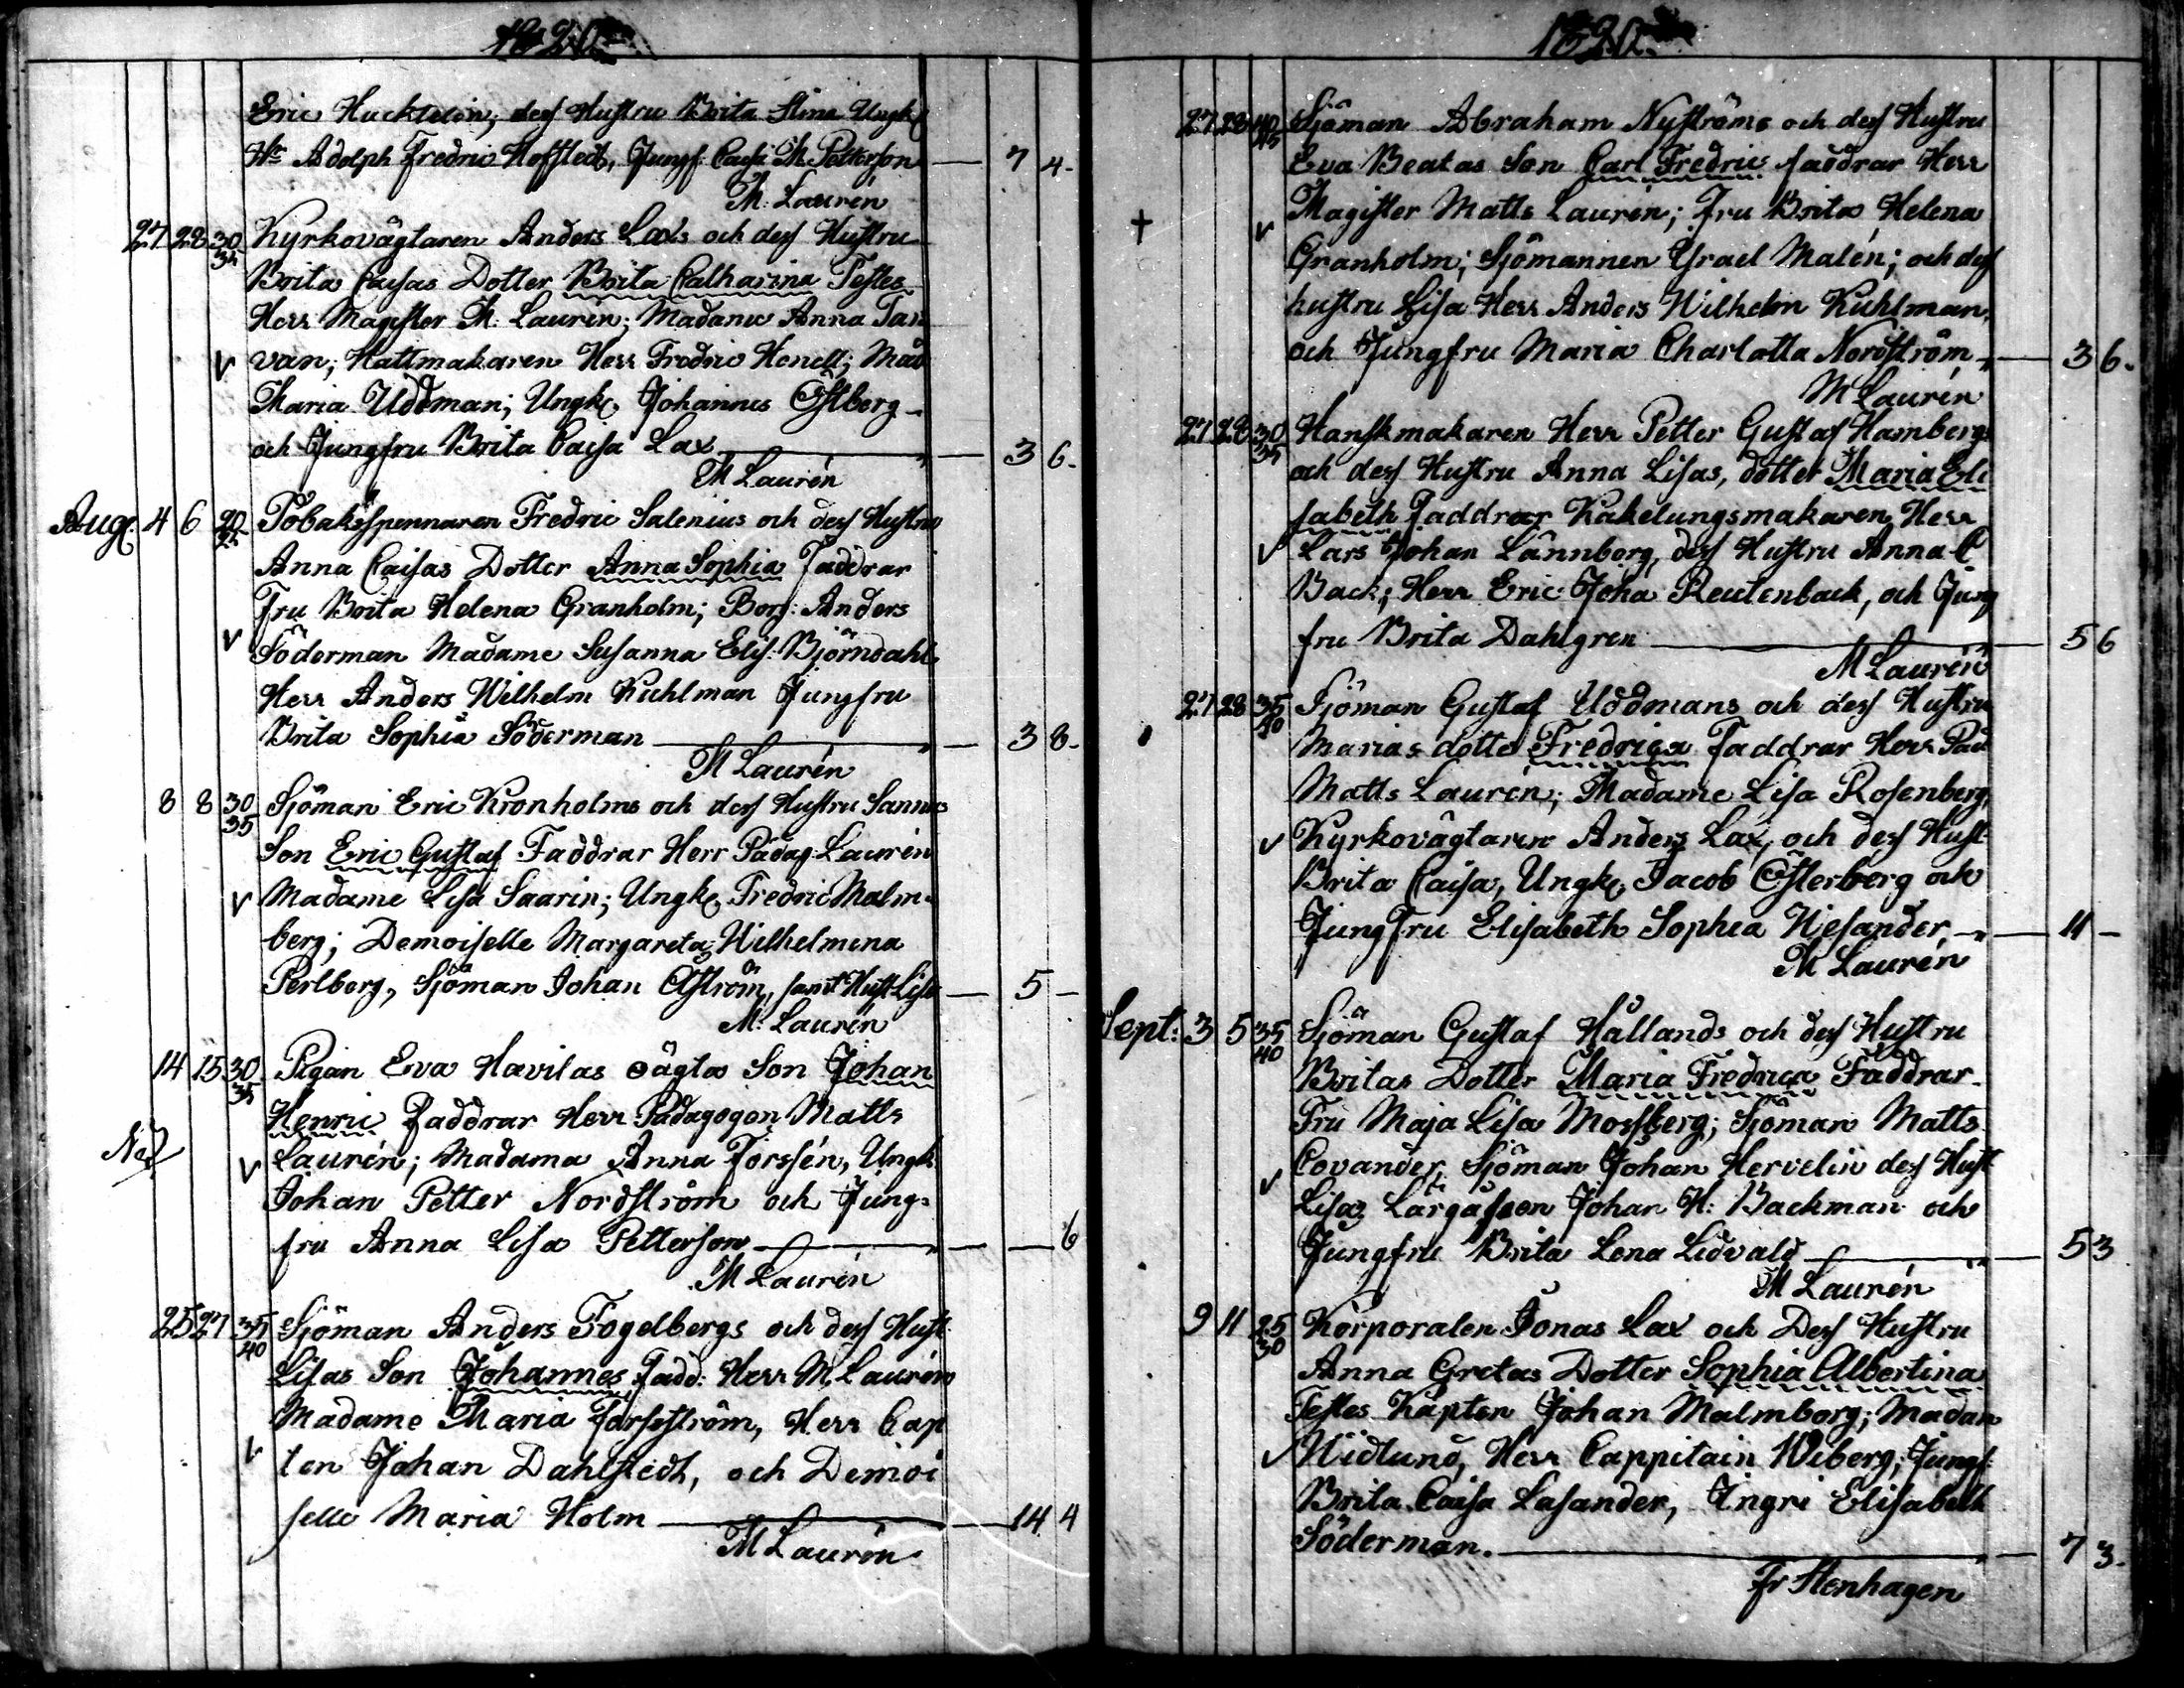 1820
Eric Hucktelin; dess Hustru Brita Stina Ungk.
Hr Adolph Fredric Hofstedt, Jungf. Caisa M. Petterson — 7 4.
M. Laurén
27 28 30/35 Kyrkovägtaren Anders Laxs och dess Hustru
Brita Caisas Dotter Brita Catharina Testes
Herr Magister M. Laurén; Madame Anna Tar
van; Hattmakaren Herr Fredric Henell; Mad
Maria Uddman; Ungk. Johannes Östberg
och Jungfru Brita Caisa Lax — 3 6.
M Laurén
Aug. 4 6 20/25 Tobaksspennaren Fredric Salenius och dess Hustru
Anna Caisas Dotter Anna Sophia Faddrar
Fru Brita Helena Granholm; Borg: Anders
Söderman Madame Susanna Elis. Björndahl
Herr Anders Wilhelm Kuhlman Jungfru
Brita Sophia Söderman — 3 8.
M Laurén
8 8 30/35 Sjöman Eric Kronholms och dess Hustru Sannas
Son Eric Gustaf Faddrar Herr Pädag. Laurén
Madame Lisa Saarin; Ungk. Fredric Malm-
berg; Demoiselle Margareta Wilhelmina
Perlberg, Sjöman Johan Åström, samt Hust Lisa — 5 —
M. Laurén
14 15 30/35 Pigan Eva Hævitas oägta Son Johan
Henric Faddrar Herr Pädagogen Matts
Laurén; Madama Anna Forssén, Ungk.
Johan Petter Nordström och Jung-
fru Anna Lisa Petterson — — 6
M Laurén
25 27 35/40 Sjöman Anders Fogelbergs och dess Hust.
Lisas Son Johannes Fadd: Herr M. Laurén
Madame Maria Forsström, Herr Cap
ten Johan Dahlstedt, och Demoi
selle Maria Holm — 14 4
M Laurén
1820
27 28 40/45 Sjöman Abraham Nyströms och dess Hustru
Eva Beatas Son Carl Fredric faddrar Herr
† Magister Matts Laurén; Fru Brita Helena
Granholm; Sjömannen Israel Malén; och dess
hustru Lisa Herr Anders Wilhelm Kuhlman,
och Jungfru Maria Charlotta Nordström — 3 6.
M Laurén
27 28 30/35 Hanskmakaren Herr Petter Gustaf Hambergs
och dess Hustru Anna Lisas, dotter Maria Eli
sabeth Faddrar Kakelungsmakaren Herr
Lars Johan Lännborg, dess Hustru Anna C
Back; Herr Eric Joha Reutenback, och Jung
fru Brita Dahlgren — 5 6
M Laurén
27 28 35/40 Sjöman Gustaf Uddmans och dess Hustru
Marias dotter Fredrica Faddrar Herr Päd
Matts Laurén; Madame Lisa Rosenberg,
Kyrkovägtaren Anders Lax, och dess Hust
Brita Caisa, Ungk. Jacob Österberg och
Jungfru Elisabeth Sophia Wesander — 11 —
M Laurén
Sept: 3 5 35/40 Sjöman Gustaf Hållands och dess Hustru
Britas Dotter Maria Fredrica Faddrar
Fru Maja Lisa Mossberg; Sjöman Matts
Covander, Sjöman Johan Hervelin dess Hust
Lisa; Johan H: Backman och
Jungfru Brita Lena Lidvald — 5 3
M Laurén
9 11 25/30 Korporalen Jonas Lax och Dess Hustru
Anna Gretas Dotter Sophia Albertina
Testes Kapten Johan Malmborg; Madam
Widlund, Herr Cappitain Wiberg; Jungf.
Brita Caisa Lasander, Ingri Elisabeth
Söderman. — 7 3.
Fr Stenhagen